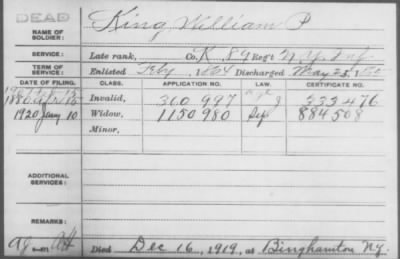 DEAD
NAME OF SOLDIER: King, William P
SERVICE: Late rank, Co. K, 89 Reg't N.Y. Inf.
TERM OF SERVICE: Enlisted Feby, 1864 Discharged May 25, 1865
DATE OF FILING. CLASS. APPLICATION NO. LAW. CERTIFICATE NO.
1880 Apr 10 Invalid, 360 997 333 476
1920 Jany 10 Widow, 1150 980 884 508
Minor,
ADDITIONAL SERVICES:
REMARKS:
Died Dec 16, 1919, at Binghamton N.Y.